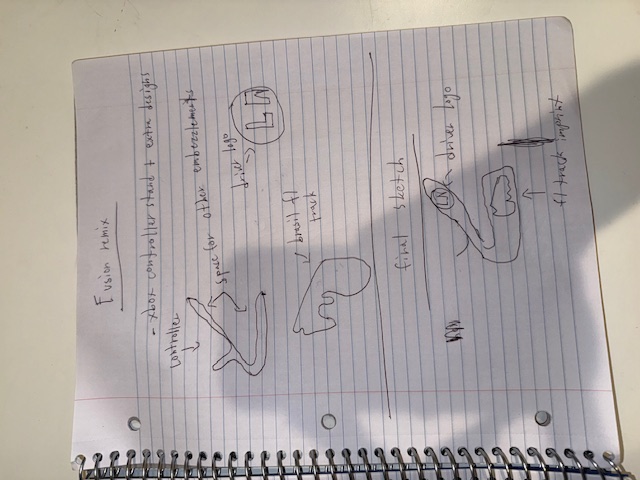 Fusion remix
- xbox controller stand + extra designs
controller
space for other embezzlements
driver logo
LN
brasil f1
track
final sketch
LN
driver logo
f1 track imprint